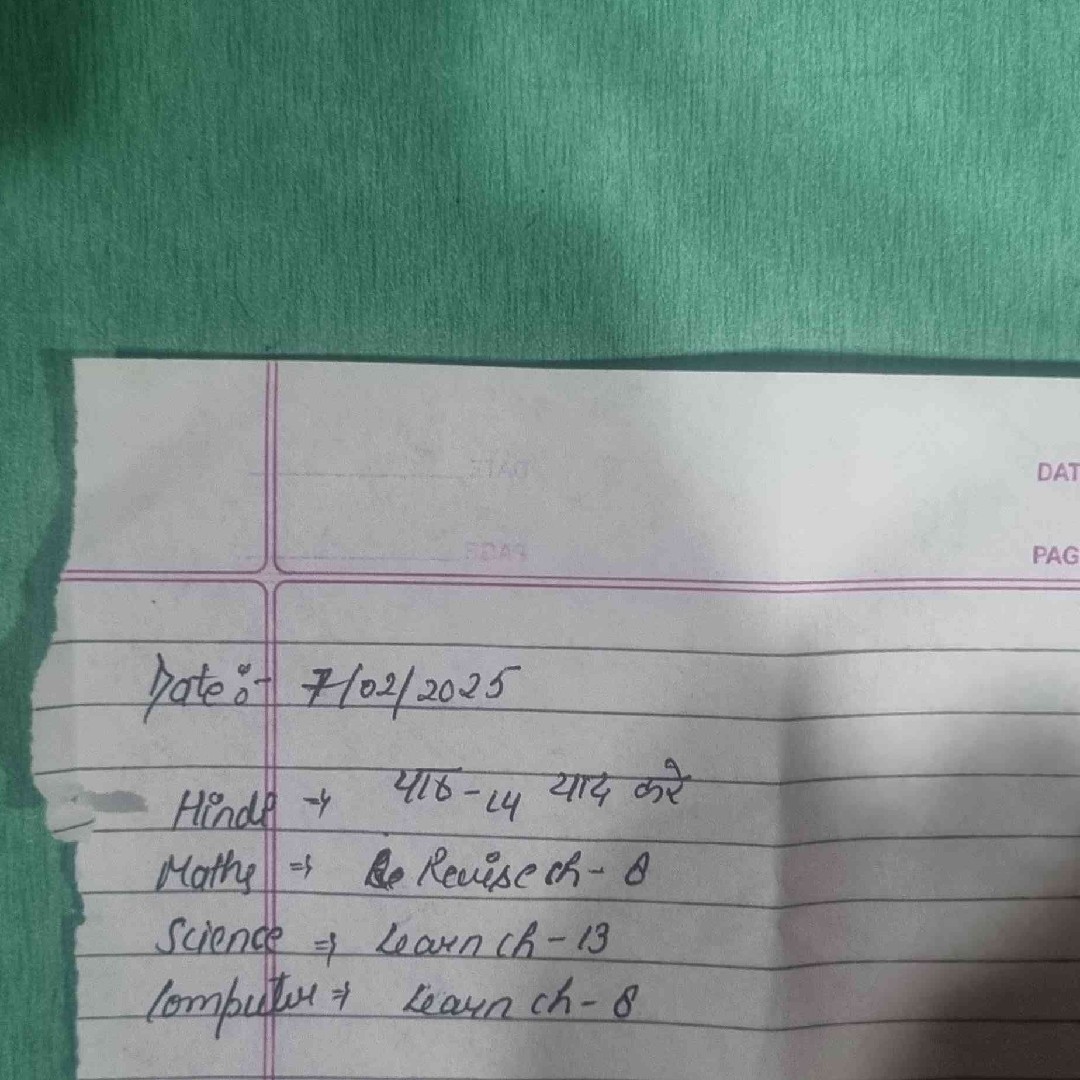 DAT
PAG
Date:- 7/02/2025
Hindi ⇒ पाठ-14 याद करे
Maths ⇒ Revise ch-8
Science ⇒ Learn ch-13
Computer ⇒ Learn ch-8